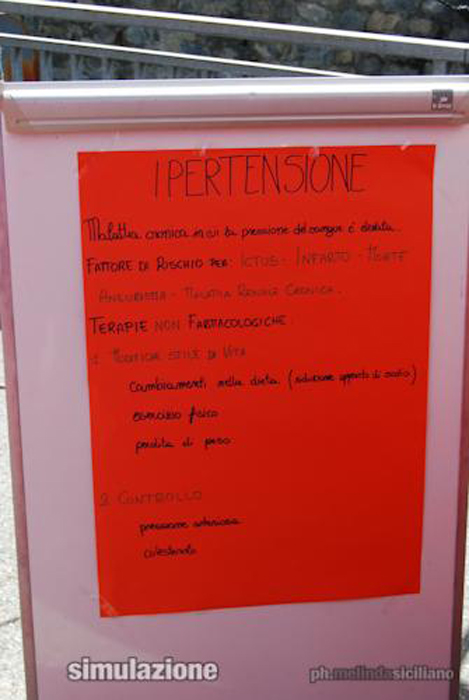 IPERTENSIONE
Malattia cronica in cui la pressione del sangue è elevata.
FATTORE DI RISCHIO PER: ICTUS - INFARTO - MORTE
ANEURISMA - MALATTIA RENALE CRONICA.
TERAPIE NON FARMACOLOGICHE
1 MODIFICA STILE DI VITA
Cambiamenti nella dieta (riduzione apporto di sodio)
esercizio fisico
perdita di peso
2 CONTROLLO
pressione arteriosa
colesterolo
simulazione
ph.melindasiciliano